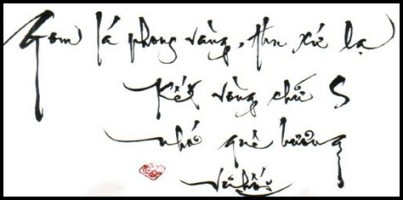 Gom lá phong vàng, thu xứ lạ
Kết vòng chữ S
nhớ quê hương
vũ hối